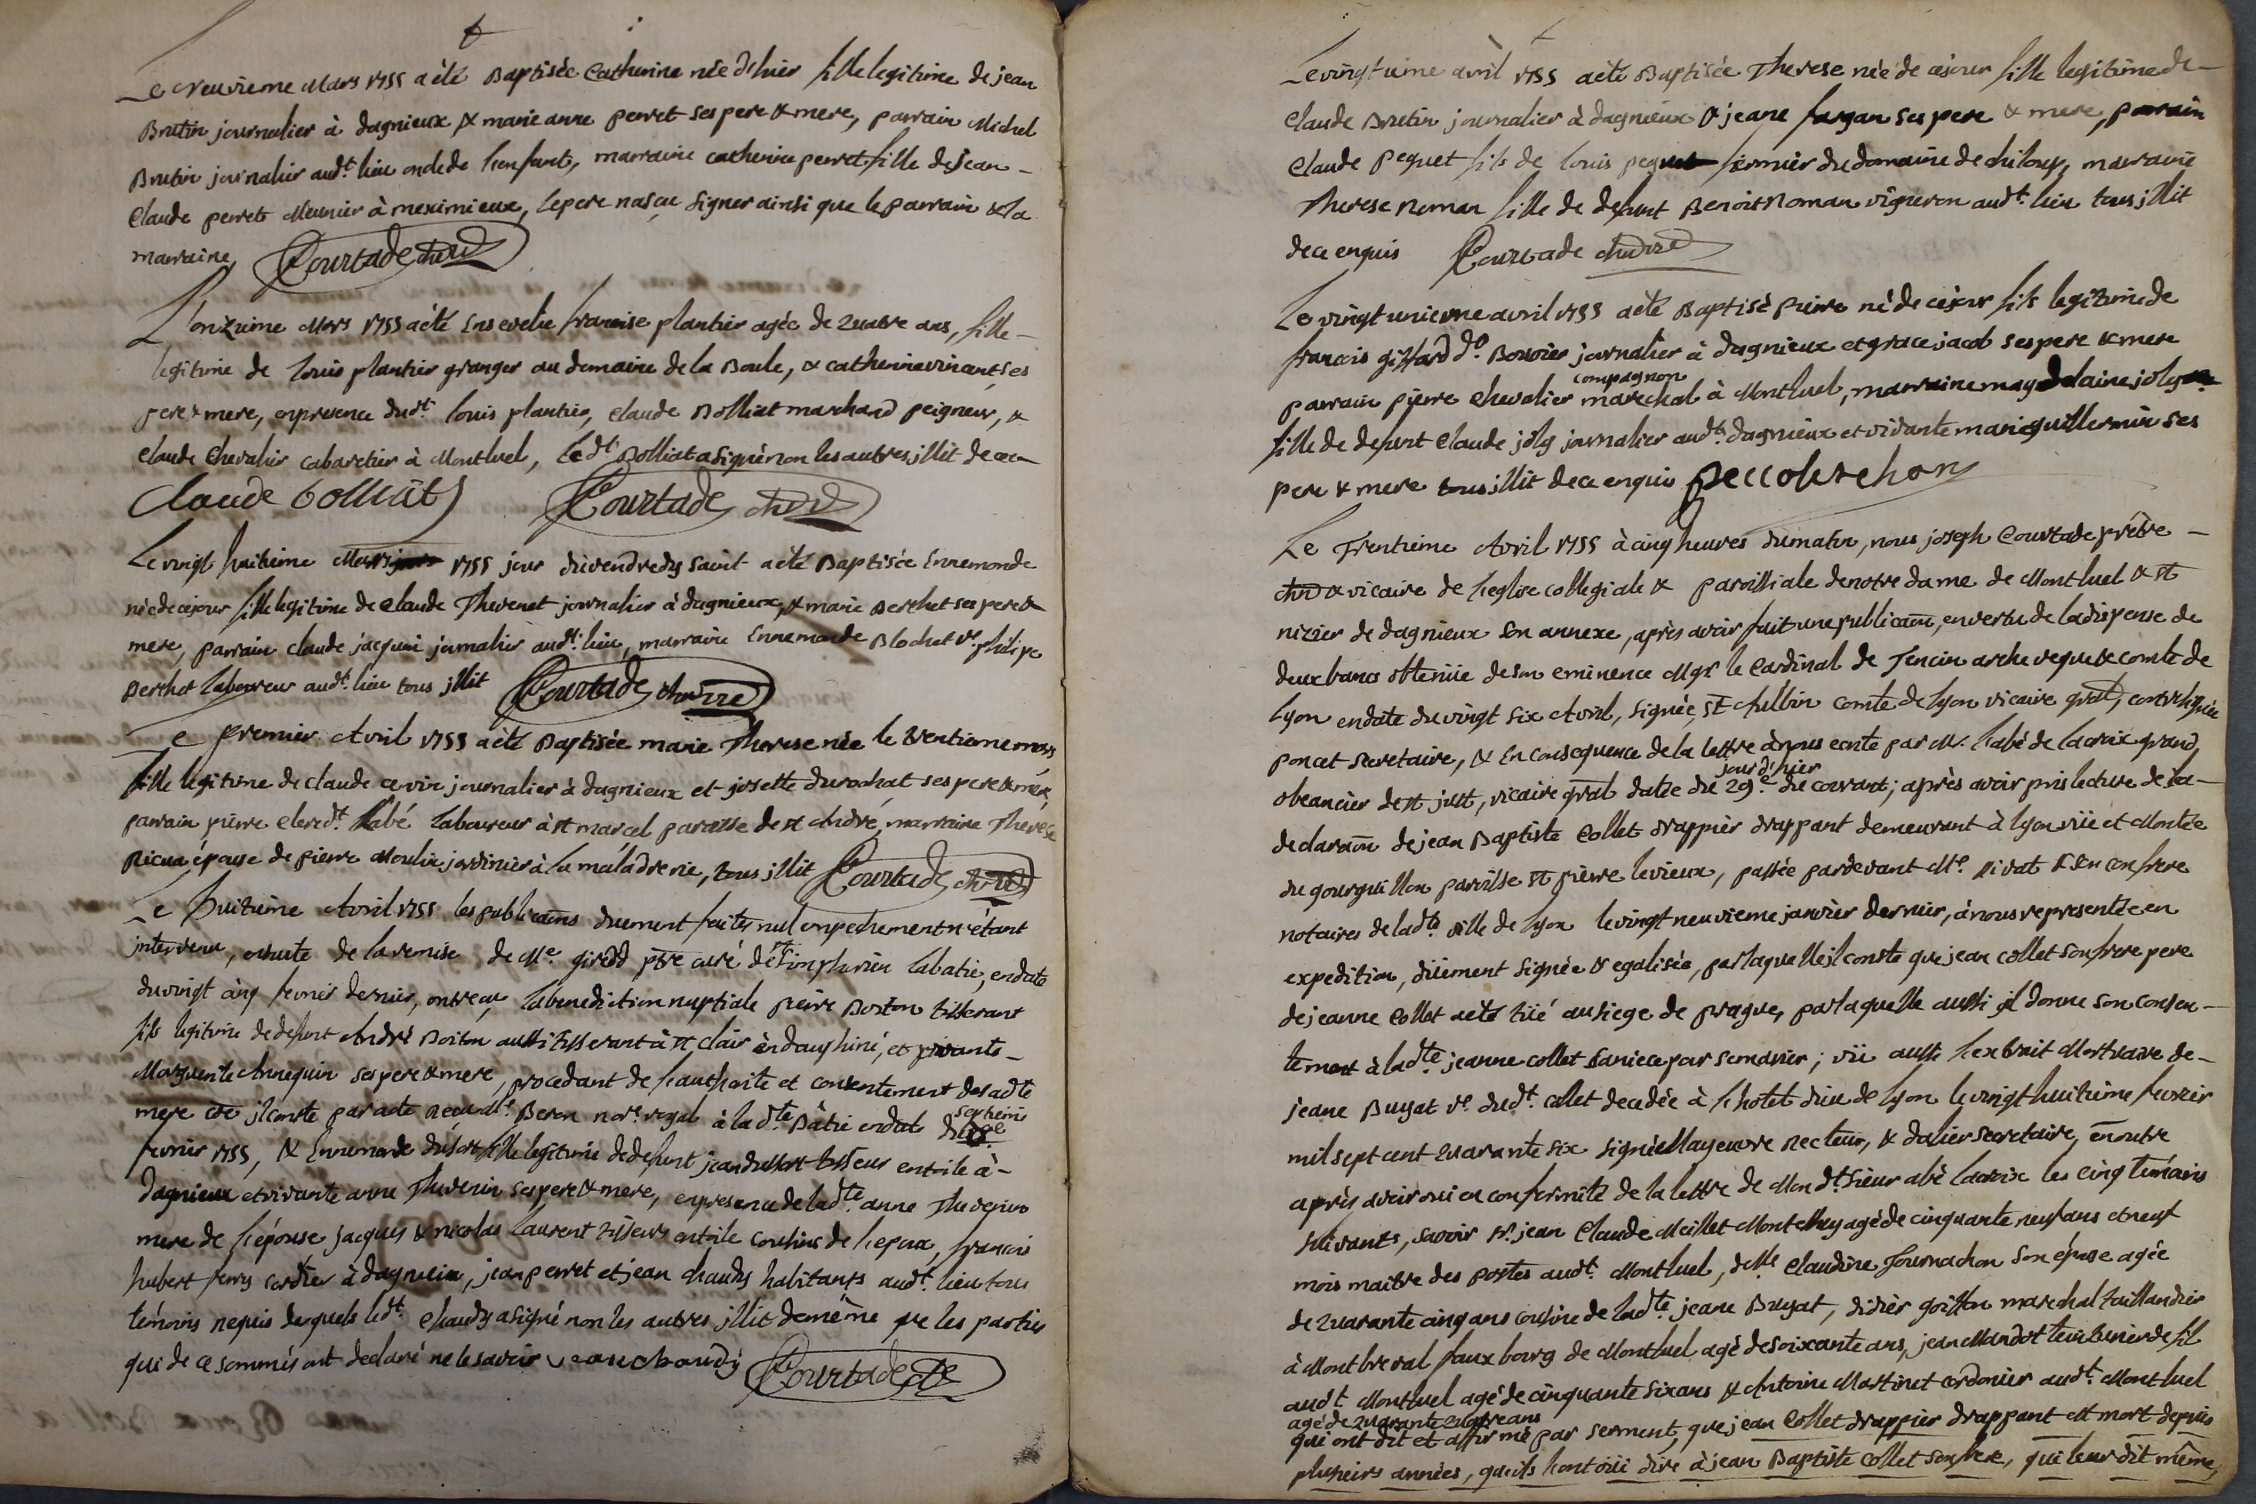 Le neuvieme Mars 1755 a été Baptisée Catherine née d'hier fille legitime de jean
Brutin journalier à dagnieux & marie anne perret ses pere & mere, parrain Michel
Brutin journalier audt. lieu oncle de l'enfant, marraine catherine perret fille de jean
Claude perret Meunier à meximieux, le pere n'a sçu signer ainsi que le parrain & la
marraine, Courtade
L'onzieme Mars 1755 a été Ensevelie francoise plantier agée de quatre ans, fille
legitime de louis plantier granger au domaine de la Boule, & catherine vincent ses
pere & mere, en presence dudt. louis plantier, Claude Bolliat marchand peigneur, &
Claude Chevalier cabaretier à Montluel, le dt. Bolliat a signé non les autres illit. de ce
Claude bolliat Courtade
Le vingt huitieme Mars 1755 jour du vendredy saint a été Baptisée Ennemonde
née de ce jour fille legitime de Claude Thevenet journalier à dagnieux, & marie Berthet ses pere &
mere, parrain claude jacquin journalier audt. lieu, marraine Ennemonde Blochet ve. philipe
Berthet laboureur audt. lieu tous illit Courtade
Le premier Avril 1755 a été Baptisée marie Therese née le trentieme mars
fille legitime de claude cevin journalier à dagnieux et josette durochat ses pere & mere,
parrain pierre clerc dt. l'abé laboureur à st marcel paroisse de st André, marraine Therese
épouse de pierre Moulin jardinier à la maladrerie, tous illit Courtade
Le huitieme Avril 1755 les publicaons duement faites nul empechement n'étant
intervenu, ensuite de la remise de Me girodd ptre curé de st simphorien labatie, en date
du vingt cinq fevrier dernier, ont reçu la benediction nuptiale pierre Boiton tisserant
fils legitime de defunt André Boiton aussi tisserant à st clair en dauphiné, et vivante
Marguerite Annequin ses pere & mere, procedant de l'authorité et consentement de sa dte
mere comme il conste par acte reçu Me. Beron nore. royal à la dte Bâtie en date du septieme
fevrier 1755, & Ennemonde dussert fille legitime de defunt jean dussert tisseur en toile à
dagnieux et vivante anne Thevenin ses pere & mere, en presence de la dte. anne Thevenin
mere de l'épouse, jacques & nicolas laurent tisseurs en toile cousins de l'epoux, francois
hubert ferry cordier à dagnieux, jean perret et jean chaudy habitants audt. lieu tous
témoins requis desquels le dt. chaudy a signé non les autres illit de même que les parties
qui de ce sommés ont declaré ne le savoir jean chaudy Courtade
Le vingtieme avril 1755 a été Baptisée Therese née de ce jour fille legitime de
Claude Brutin journalier à dagnieux & jeane fargan ses pere & mere, parrain
Claude pequet fils de louis pequet fermier du domaine de chiloup, marraine
Therese Noman fille de defunt Benoit Noman vigneron audt. lieu tous illit
de ce enquis Courtade
Le vingt unieme avril 1755 a été Baptisé pierre né de ce jour fils legitime de
francois giffard dt. Bouvier journalier à dagnieux et grace jacob ses pere & mere
parrain pierre Chevalier compagnon marechal à Montluel, marraine magdelaine joly
fille de defunt Claude joly journalier audt. dagnieux et vivante marie guillermin ses
pere & mere tous illit de ce enquis
Le Trentieme Avril 1755 à cinq heures du matin, nous joseph Courtade prêtre
& vicaire de l'eglise collegiale & paroissiale de notre dame de Montluel & st
nizier de dagnieux son annexe, après avoir fait une publicaon, en vertu de la dispense de
deux bancs obtenüe de son eminence Mgr le Cardinal de Tencin archeveque & comte de
Lyon en date du vingt six Avril, signée, st Aulbin comte de lyon vicaire gral, contresignée
poncet secretaire, & En consequence de la lettre à nous ecrite par Mr. l'abé de lacroix grand
obeancier de st just, vicaire gral datée du jour d'hier 29e du courant; après avoir pris lecture de la
declaraon de jean Baptiste Collet drappier drappant demeurant à lyon rüe et Montée
du gourguillon paroisse st pierre le vieux, passée pardevant Me. vivat & son confrere
notaires de la dte. ville de lyon le vingt neuvieme janvier dernier, à nous representée en
expedition, düement signée & egalisée, par laquelle il conste que jean collet son frere pere
de jeanne Collet a été tüé au siege de prague, par laquelle aussi il donne son consen-
tement à la dte jeanne collet sa niece par se marier; vü aussi l'extrait Mortuaire de
jeane Buyat ve. dudt. collet decedée à l'hotel dieu de lyon le vingt huitieme fevrier
mil sept cent quarante six signée Mayeuvre Recteur, & dalier secretaire, en outre
après avoir oui en conformité de la lettre de Mon dt. sieur abé lacroix les cinq temoins
suivants, savoir sr. jean Claude Meillet Montessuy agé de cinquante neuf ans et neuf
mois maitre des postes audt. Montluel, delle. Claudine Tournachon son épouse agée
de quarante cinq ans cousine de la dte. jeane Buyat, didier goiffon marechal taillandier
à Montbreval fauxbourg de Montluel agé de soixante ans, jean Mandot teinturier de fil
audt. Montluel agé de cinquante six ans & Antoine Martinet cordonier audt. Montluel
agé de quarante quatre ans
qui ont dit et affirmé par serment, que jean Collet drappier drappant est mort depuis
plusieurs années, qu'ils l'ont oüi dire à jean Baptiste Collet son frere, qui leur dit même,